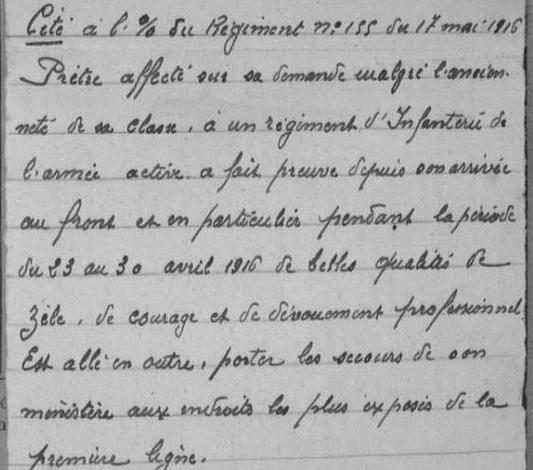 Cité à l'% du Régiment n° 155 du 17 mai 1916
Prêtre affecté sur sa demande malgré l'ancien-
neté de sa classe, à un régiment d'Infanterie de
l'armée active a fait preuve depuis son arrivée
au front et en particulier pendant la période
du 23 au 30 avril 1916 de belles qualités de
zèle, de courage et de dévouement professionnel.
Est allé en outre, porter les secours de son
ministère aux endroits les plus exposés de la
première ligne.